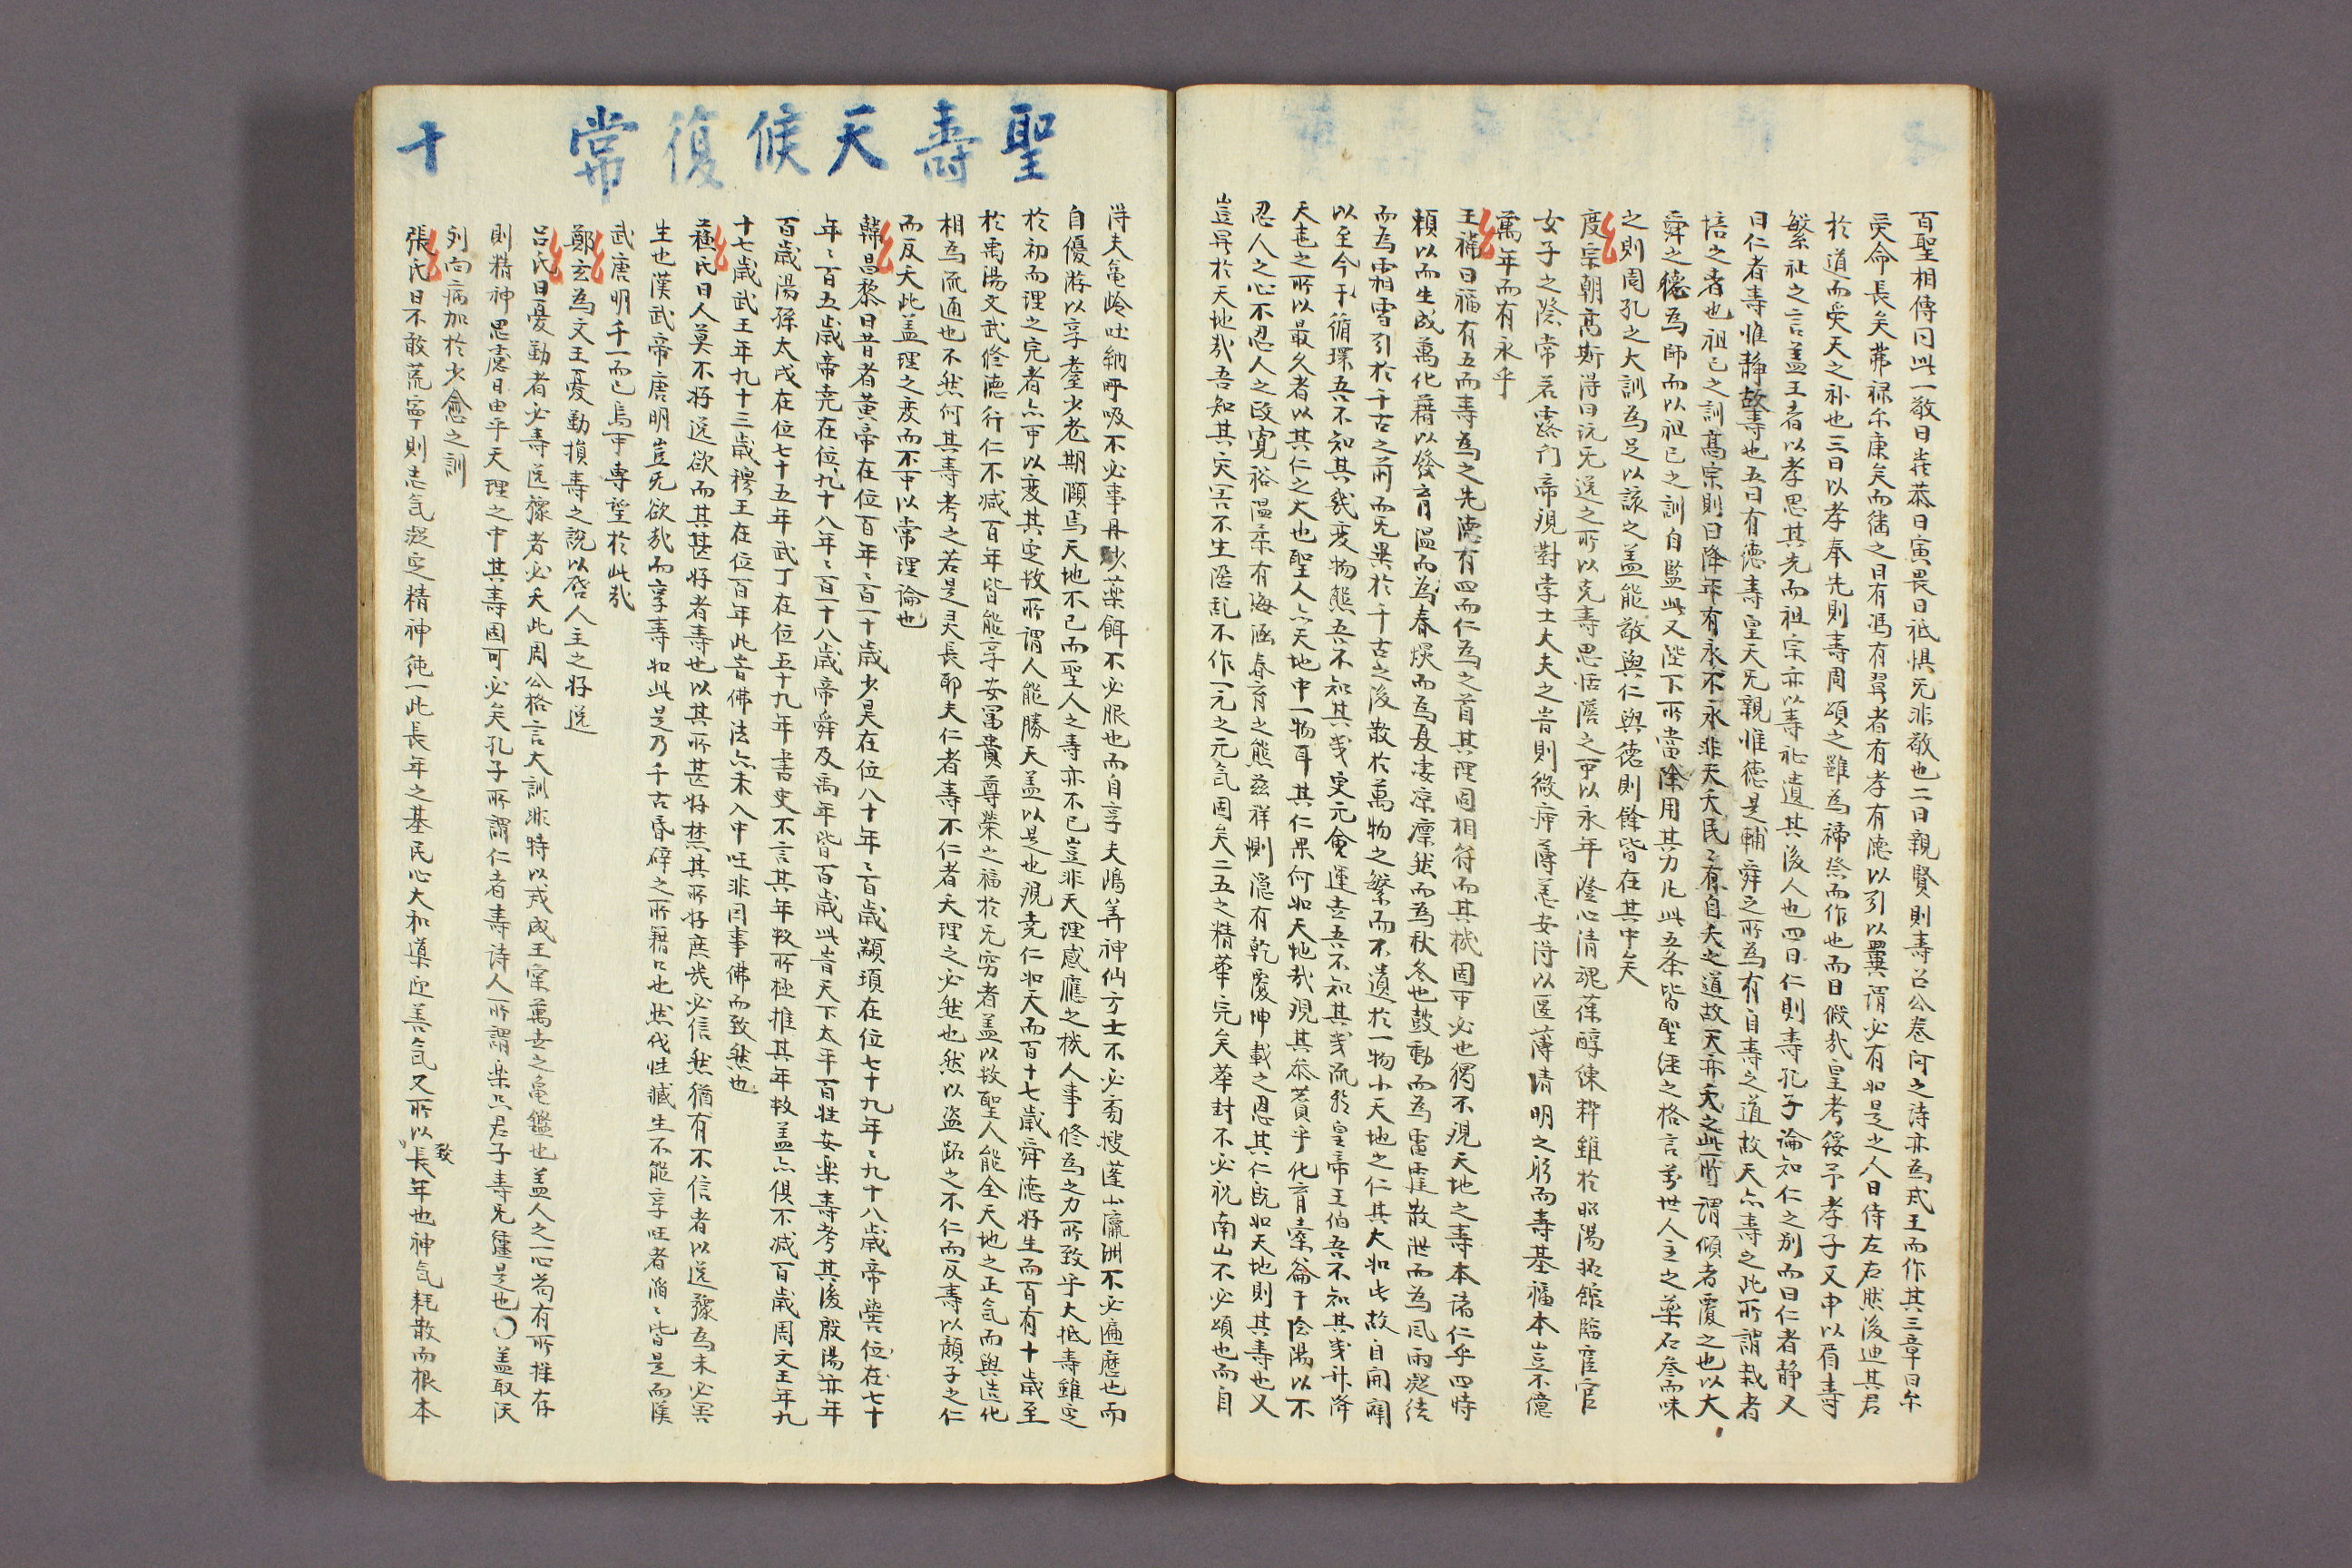 百聖相傳同此一敬曰嚴恭曰寅畏曰祗惧无非敬也二曰親賢則壽召公卷阿之詩亦為成王而作其三章曰尔
受命長矣茀禄尔康矣而継之曰有馮有翼者有孝有徳以引以翼謂必有如是之人日侍左右然後迪其君
於道而受天之祐也三曰以孝奉先則壽周頌之雖為禘祭而作也而曰假哉皇考綏予孝子又申以眉壽
繁祉之言盖王者以孝思其先而祖宗亦以壽祉遺其後人也四曰仁則壽孔子論知仁之别而曰仁者静又
曰仁者壽惟静故壽也五曰有徳壽皇天无親惟徳是輔舜之所為有自壽之道故天亦壽之此所謂栽者
培之者也祖己之訓髙宗則曰降年有永不永非天夭民民有自夭之道故天亦夭之此所謂傾者覆之也以大
舜之徳為師而以祖己之訓自監此又陛下所當深用其力凡此五条皆聖経之格言萬世人主之薬石叅而味
之則周孔之大訓為足以該之盖能敬與仁與徳則餘皆在其中矣
度宗朝髙斯得曰沅无逸之所以克壽思恬澹之可以永年澄心清魂葆醇練粋雖於昭陽拓館臨窓官
女子之際常若露門帝視對孝士大夫之旹則微疴薄恙安得以區薄清明之躬而壽基福本豈不億
萬年而有永乎
王補曰福有五而壽為之先徳有四而仁為之首其理固相符而其機固可必也獨不現天地之壽本諸仁乎四時
頼以而生成萬化藉以發育温而為春燠而為夏凄凉凛然而為秋冬也鼓動而為雷霆散泄而為風雨凝結
而為霜雪引於千古之前而无異於千古之後散於萬物之繁而不遺於一物小天地之仁其大如此故自開闢
以至今于循環吾不知其幾変物態吾不知其幾更元會運丗吾不知其幾流形皇帝王伯吾不知其幾升降
天地之所以最久者以其仁之大也聖人亦天地中一物耳其仁果何如天地哉現其叅賛乎化育橐籥于陰陽以不
忍人之心不忍人之政寛裕温柔有海涵春育之態慈祥惻隠有乾覆坤載之恩其仁既如天地則其壽也又
豈異於天地哉吾知其灾害不生淫乱不作一元之元氣固矣二五之精華完矣華封不必祝南山不必頌也而自
聖壽天候復常
得夫亀齢吐納呼吸不必事丹砂薬餌不必服也而自享夫鴻筭神仙方士不必㫄搜蓬山瀛洲不必遍歴也而
自優游以享耋少老期頤焉天地不已而聖人之壽亦不已豈非天理感應之機人事修為之力所致乎大抵壽雖定
於初而理之完者亦可以変其定数所謂人能勝天盖以是也現尭仁如天而百十七歳舜徳好生而百有十歳至
於禹湯文武修徳行仁不减百年皆能享安富貴尊榮之福於无窮者盖以故聖人能全天地之正氣而與造化
相為流通也不然何其壽考之若是灵長耶夫仁者壽不仁者夭理之必然也然以盗跖之不仁而反壽以顔子之仁
而反夭此盖理之変而不可以常理論也
韓昌黎曰昔者黄帝在位百年〻百一十歳少昊在位八十年〻百歳顓頊在位七十九年〻九十八歳帝嚳在位七十
年〻百五歳帝尭在位九十八年〻百一十八歳帝舜及禹年皆百歳此旹天下太平百姓安楽壽考其後殷湯亦年
百歳湯孫太戊在位七十五年武丁在位五十九年書史不言其年数所極推其年数盖亦倶不减百歳周文王年九
十七歳武王年九十三歳穆王在位百年此旹佛法亦未入中囯非因事佛而致然也
蘓氏曰人莫不好逸欲而其甚好者壽也以其所甚好禁其所好庶幾必信然猶有不信者以逸豫為未必害
生也漢武帝唐明豈无欲哉而享壽如此是乃千古昏僻之所藉口也然伐性瘯生不能享囯者滔〻皆是而漢
武唐明千一而已烏可専望於此哉
鄭玄為文王憂勤損壽之説以啓人主之好逸
吕氏曰憂勤者必壽逸豫者必夭此周公格言大訓非特以戒成王寔萬丗之亀鑑也盖人之一心尚有所推存
則精神思慮日由乎天理之中其壽固可必矣孔子所謂仁者壽詩人所謂楽只君子壽无疆是也〇盖取沃
列向病加於少愈之訓
張氏曰不敢荒寧則志氣凝定精神純一此長年之基民心大和導迎善氣又所以致長年也神氣耗散而根本
十